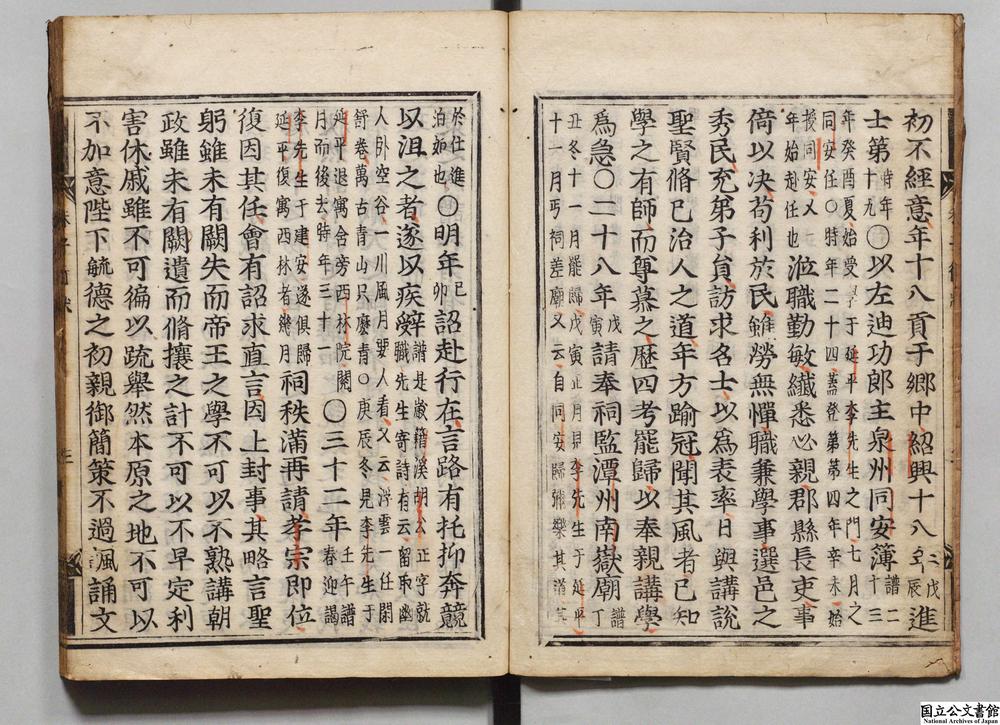 初不經意年十八貢于鄉中紹興十八年戊辰進
士第時年十九○以左迪功郎主泉州同安簿譜二十三
年癸酉夏始受學于延平李先生之門七月之
同安任○時年二十四蓋登第第四年辛未始
授同安又一年始赴任也涖職勤敏纖悉必親郡縣長吏事
倚以决苟利於民雖勞無憚職兼學事選邑之
秀民充弟子員訪求名士以為表率日與講說
聖賢脩已治人之道年方踰冠聞其風者已知
學之有師而尊慕之歷四考罷歸以奉親講學
為急○二十八年戊寅請奉祠監潭州南嶽廟譜丁
丑冬十一月罷歸戊寅正月見李先生于延平
十一月丐祠差廟又云自同安歸彌樂其道其
於仕進泊如也○明年己卯詔赴行在言路有托抑奔競
以沮之者遂以疾辭譜是歲籍溪胡公正字就職先生寄詩有云留取幽
人卧空谷一川風月要人看又云浮雲一任閑
舒卷萬古青山只麽青○庚辰冬見李先生于
延平退寓舍旁西林院閱月而後去時年三十一○三十二年壬午譜春迎謁
李先生于建安遂俱歸延平復寓西林者幾月祠秩滿再請孝宗即位
復因其任會有詔求直言因上封事其略言聖
躬雖未有闕失而帝王之學不可以不熟講朝
政雖未有闕遺而脩攘之計不可以不早定利
害休戚雖不可徧以疏舉然本原之地不可以
不加意陛下毓德之初親御簡策不過諷誦文
国立公文書館
National Archives of Japan